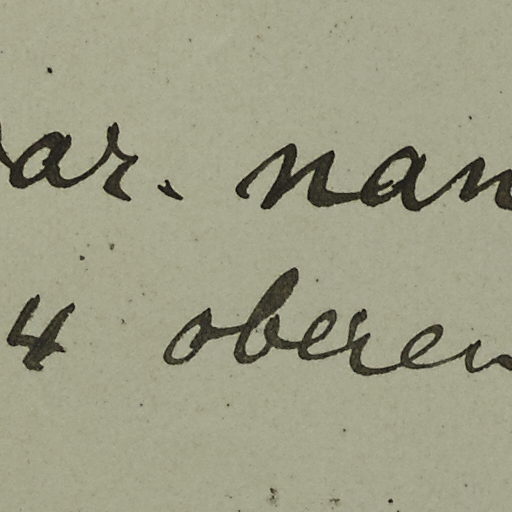 var. nan
4 oberen